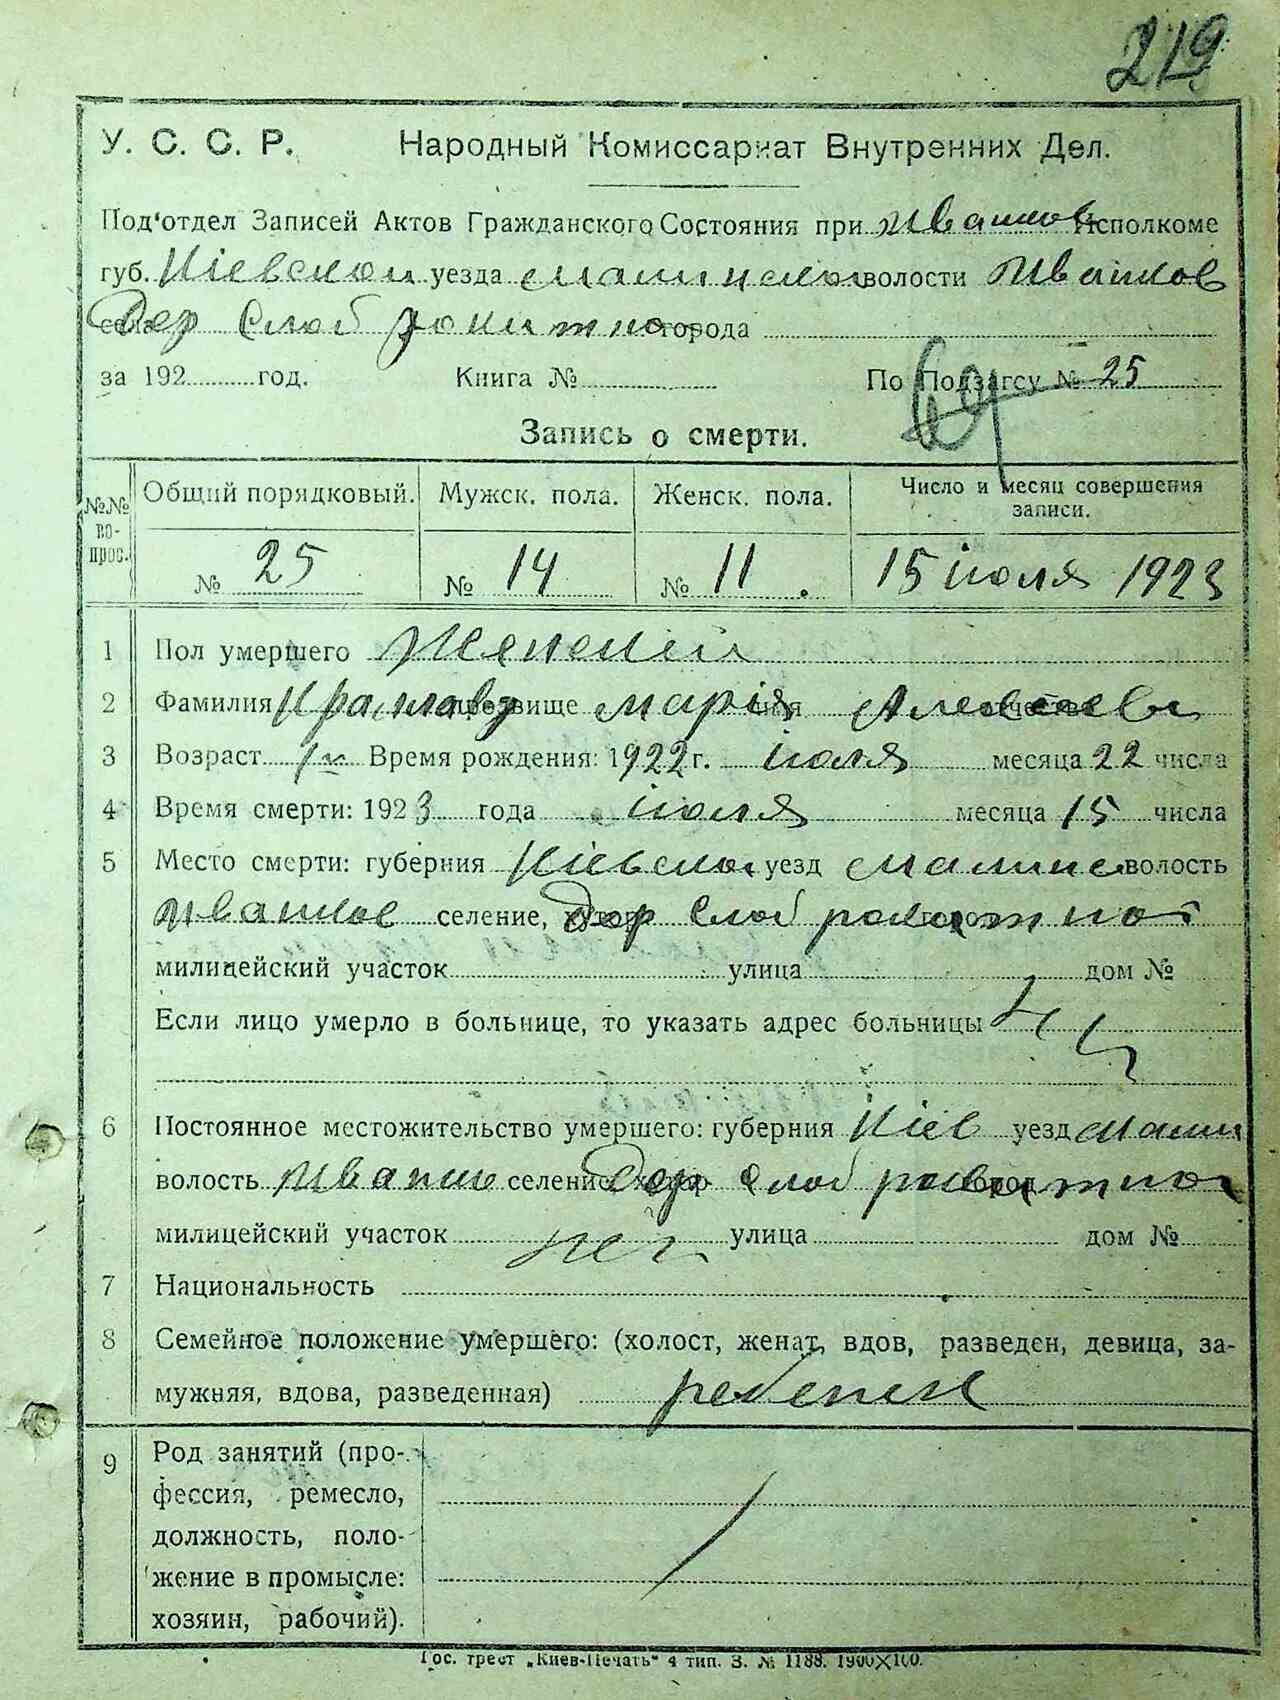 219
У. С. С. Р. Народный Комиссариат Внутренних Дел.
Под'отдел Записей Актов Гражданского Состояния при Ивашков Исполкоме
губ. Кіевской уезда Малинской волости Ивашков
села Дер Слоб города
за 192 год. Книга № По Подзагсу № 25
69
Запись о смерти.
№№ вопрос. Общий порядковый. Мужск. пола. Женск. пола. Число и месяц совершения записи.
№ 25 № 14 № 11. 15 июля 1923
1 Пол умершего Женский
2 Фамилия прозвище Марія имя отчество
3 Возраст 1 Время рождения: 1922 г. июля месяца 22 числа
4 Время смерти: 1923 года июля месяца 15 числа
5 Место смерти: губерния Кіевской уезд Малинс волость
Ивашков селение, хутор Дер Слоб
милицейский участок улица дом №
Если лицо умерло в больнице, то указать адрес больницы
6 Постоянное местожительство умершего: губерния Кіев уезд Малин
волость селение хутор Дер Слоб город
милицейский участок нет улица дом №
7 Национальность
8 Семейное положение умершего: (холост, женат, вдов, разведен, девица, за-
мужняя, вдова, разведенная) ребенок
9 Род занятий (про-
фессия, ремесло,
должность, поло-
жение в промысле:
хозяин, рабочий).
Гос. трест „Киев-Печать" 4 тип. З. № 1188. 1900X100.